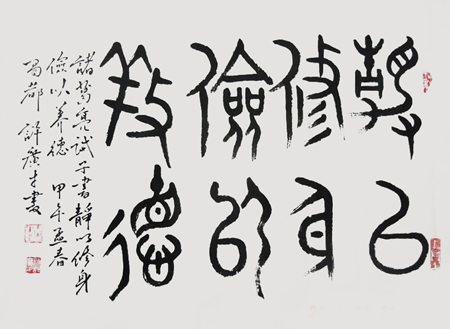 靜以
修身
儉以
養德
諸葛亮誡子書靜以修身
儉以養德 甲午孟春
蜀都 許廣才書